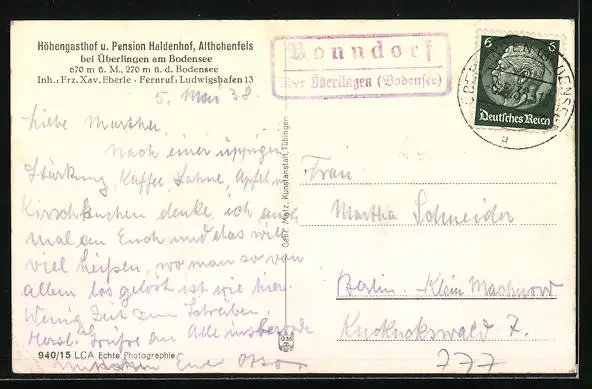 Höhengasthof u. Pension Haldenhof, Althohenfels
bei Überlingen am Bodensee
670 m ü. M., 270 m ü. d. Bodensee
Inh.: Frz. Xav. Eberle · Fernruf: Ludwigshafen 13
Bonndorf
über Überlingen (Bodensee)
6 6
Deutsches Reich
5. Mai 38.
Liebe Martha,
Nach einer üppigen
Stärkung, Kaffee Sahne, Apfel u.
Kirschkuchen denke ich auch
mal an Euch und das will
viel heißen, wo man so von
allem los gelöst ist wie hier.
Wenig Zeit zum Schreiben,
Horst. Grüße an Alle insbesonde
Euer Otto
Gebr. Metz, Kunstanstalt, Tübingen
Frau
Martha Schneider
Berlin-Klein Machnow
Kuckuckswald 7.
777
940/15 LCA Echte Photographie